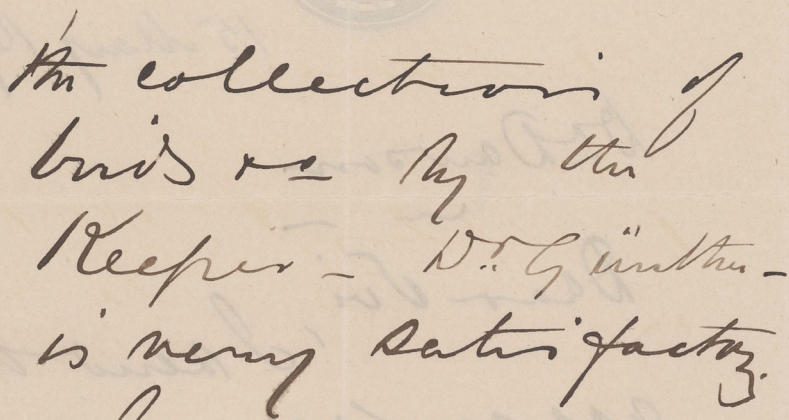 the collections of
birds &c by the
Keeper - Dr. Günther -
is very satisfactory.